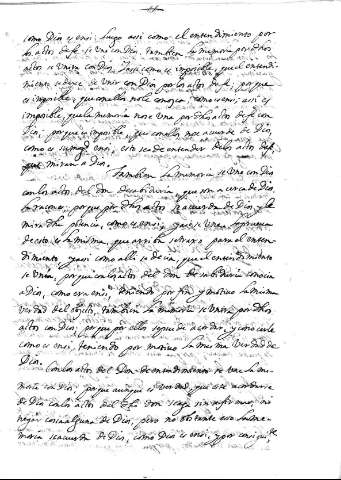 como Dios es en si. Luego assi como el entendimiento por
los actos de fe se une con Dios, tambien la memoria por dhos
actos se unira con Dios. Y assi como es imposible, que el entendi-
miento dexe de unirse con Dios por los actos de fe, porque
es imposible, que con ellos no le conozca como es en si, assi es
imposible, que la memoria no se una por dhos actos de fe con
Dios, porque es imposible, que con ellos no se acuerde de Dios,
como es en si, esto se a de entender de los actos de fe,
que miran a Dios.
Tambien la memoria se une con Dios
con los actos del don de sabiduria que son acerca de Dios.
La raçon, porque por dhos actos se acuerda de Dios, y le
mira dha potencia, como es en si, y assi se une. La prueva
de esto es la misma, que arriba se traxo para el enten-
dimiento y assi como alli se decia, que el entendimiento
se unia, porque con los actos del don de sabiduria conocia
a Dios, como era en si, teniendo por fin y motivo la misma
verdad del objeto, tambien la memoria se unira por dhos
actos con Dios, porque por ellos se puede acordar, y
como es en si, teniendo por motivo la misma verdad de
Dios.
Con los actos del Don de entendimiento se une la me-
moria con Dios; porque aunque es verdad, que este acordarse
de Dios con los actos del dho don sea, no
negar cosa alguna de Dios; pero no obstante esso la me-
moria se acuerda de Dios, como Dios es en si, y por consigui